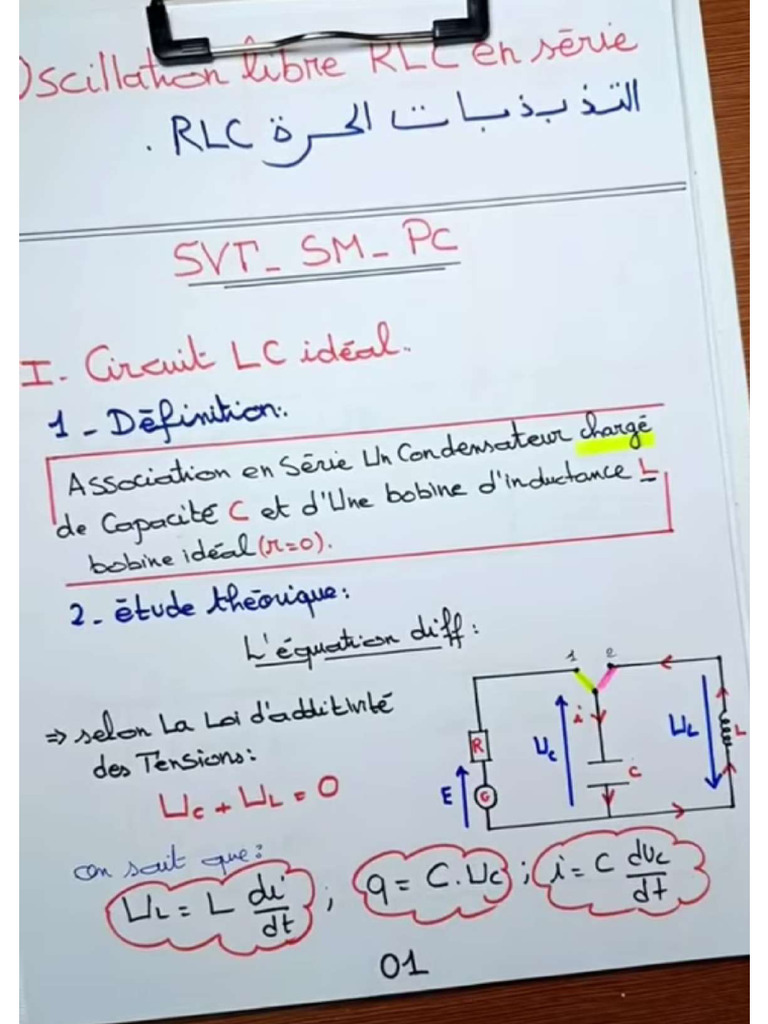 Oscillation libre RLC en série
التذبذبات الحرة RLC .
SVT_ SM_ PC
I. Circuit LC idéal.
1 - Définition:
Association en Série Un Condensateur chargé
de Capacité C et d'Une bobine d'inductance L
bobine idéal (r=0).
2 - étude théorique:
L'équation diff:
⇒ selon La Loi d'additivité
des Tensions:
Uc + UL = 0
1 2
R
G
E
Uc
i
C
UL
L
on sait que:
UL = L di/dt ; q = C.Uc ; i = C dUc/dt
01